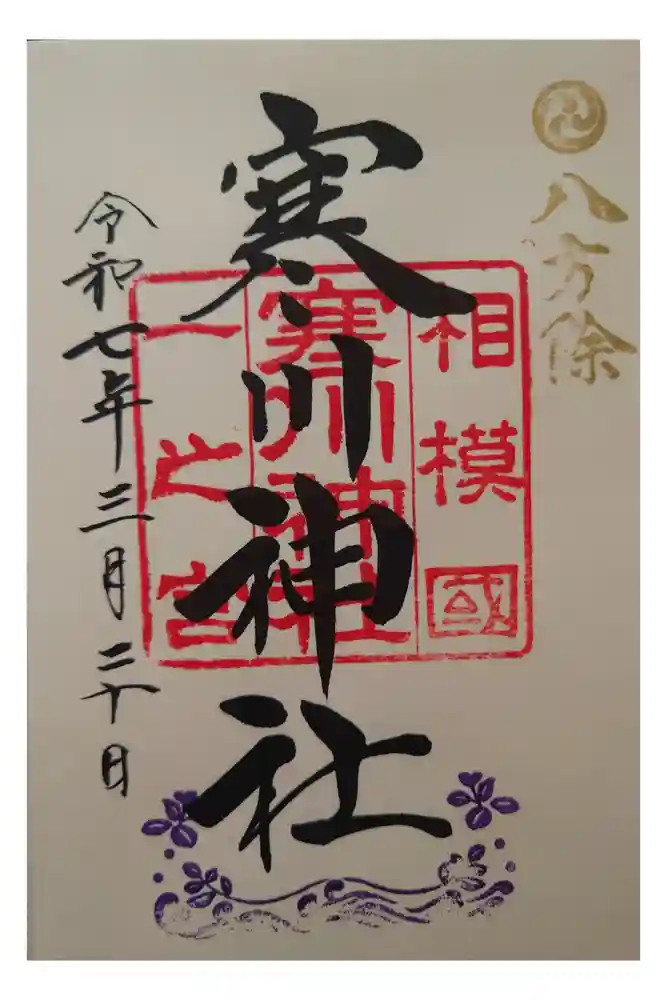 八方除
相模國
寒川神社
一之宮
寒川神社
令和七年三月二十日